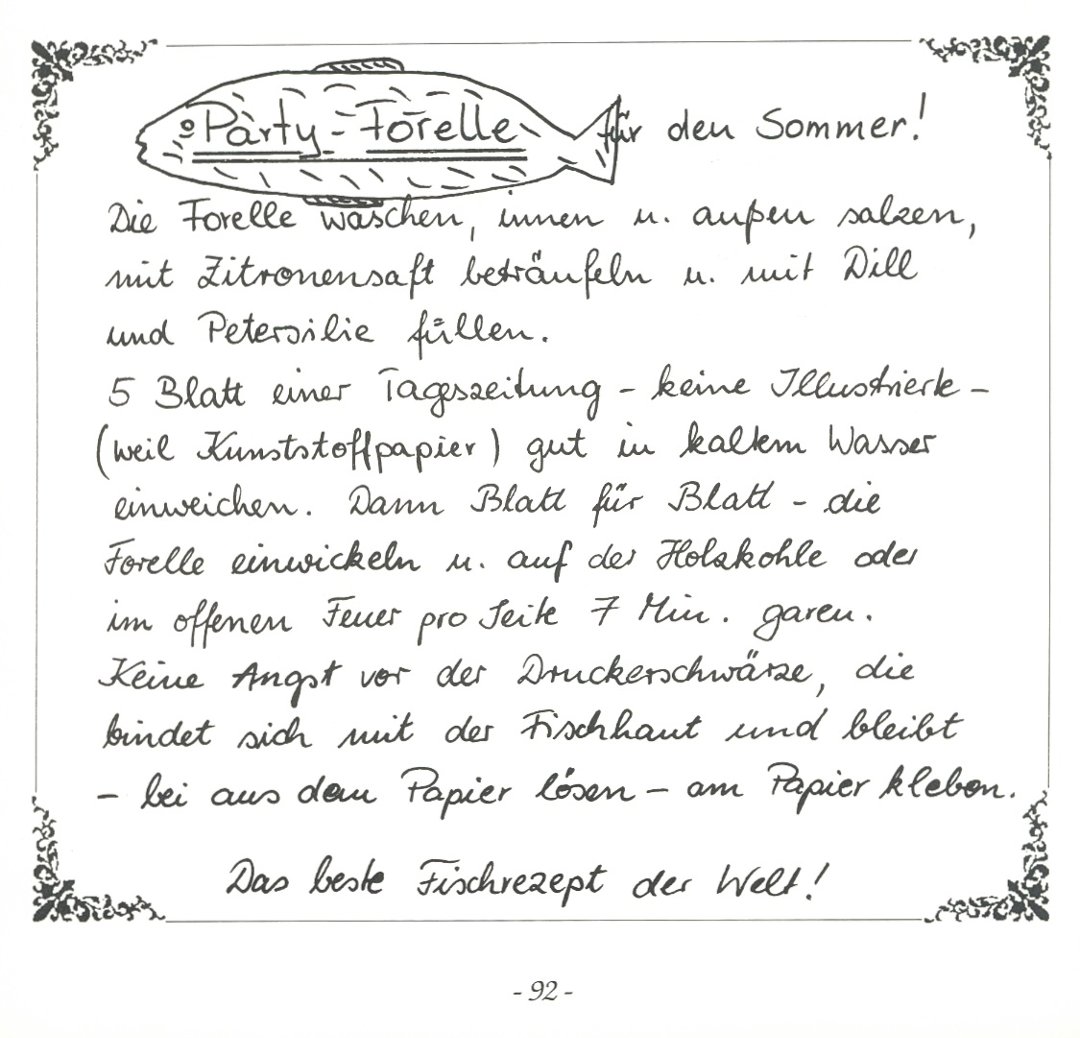 Party-Forelle für den Sommer!
Die Forelle waschen, innen u. außen salzen,
mit Zitronensaft beträufeln u. mit Dill
und Petersilie füllen.
5 Blatt einer Tageszeitung - keine Illustrierte -
(weil Kunststoffpapier) gut in kaltem Wasser
einweichen. Dann Blatt für Blatt - die
Forelle einwickeln u. auf der Holzkohle oder
im offenen Feuer pro Seite 7 Min. garen.
Keine Angst vor der Druckerschwärze, die
bindet sich mit der Fischhaut und bleibt
- bei aus dem Papier lösen - am Papier kleben.
Das beste Fischrezept der Welt!
- 92 -